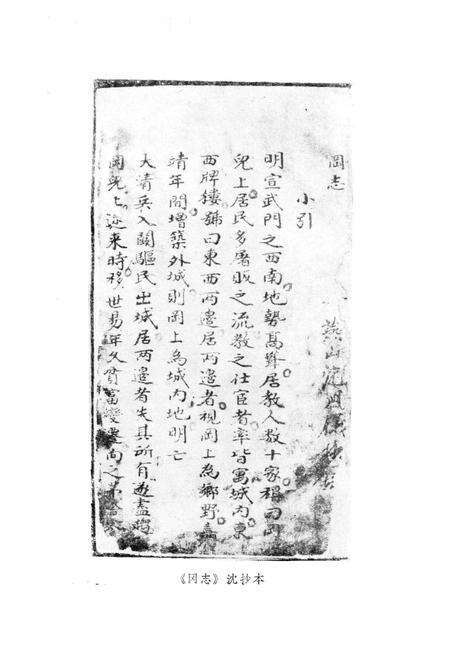 岡志
小引
明宣武門之西南地勢高聳居教人數十家稱曰岡
兒上居民多屠販之流教之仕宦者率皆寓城內東
西牌樓號曰東西兩邊居兩邊者視岡上為鄉野嘉
靖年間增築外城則岡上為城內地明亡
大清兵入關驅民出城居兩邊者失其所有遊盡
岡兒上近來時移世易年久貧富變
《冈志》沈抄本